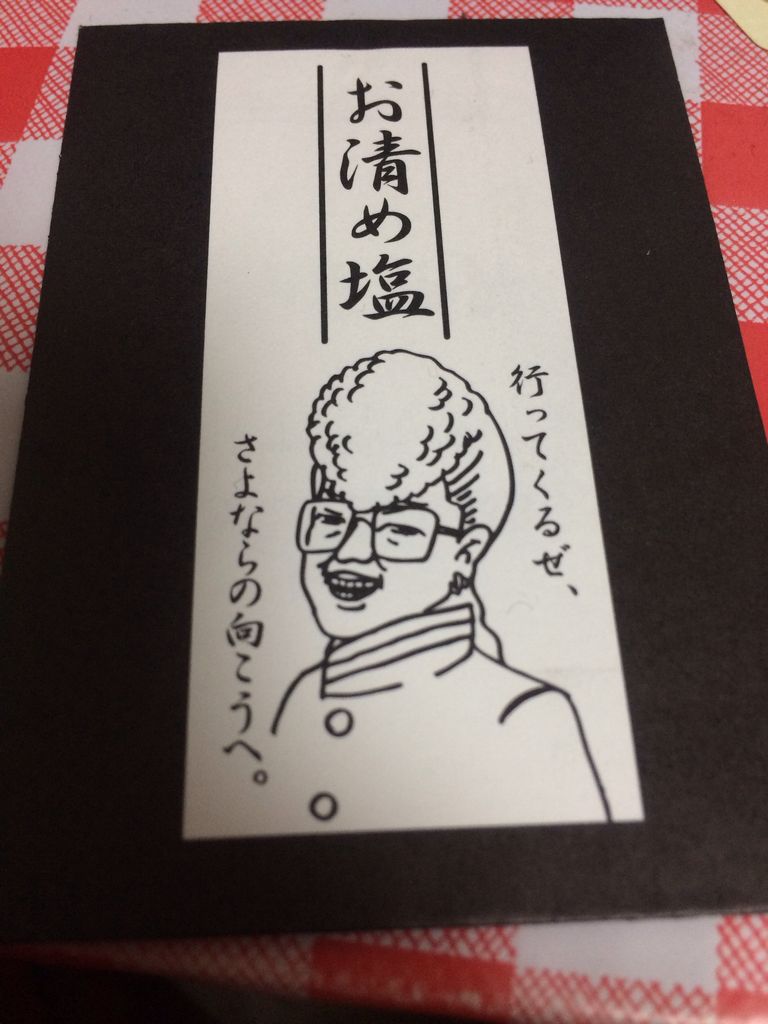 お清め塩
行ってくるぜ、
さよならの向こうへ。